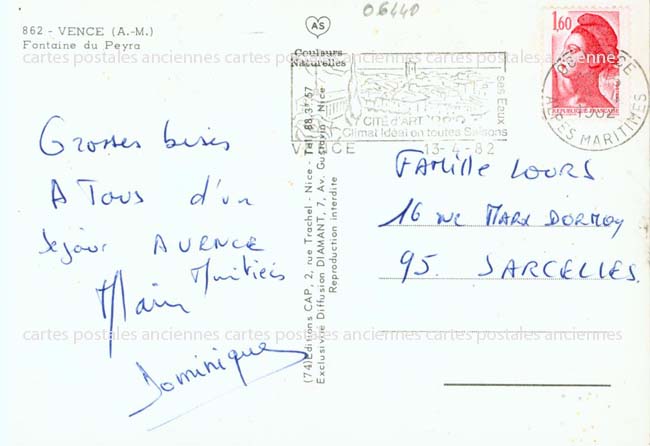 862 - VENCE (A.-M.)
Fontaine du Peyra
AS
Couleurs
Naturelles
06440
1,60
REPUBLIQUE FRANCAISE
VENCE
ALPES MARITIMES
CITÉ D'ART
Climat Idéal en toutes Saisons
ses Eaux
VENCE 13-4-82
Grosses bises
A Tous d'un
séjour A VENCE
Alain
Dominique
FAMille LOURS
16 rue MARX DORMOY
95. SARCELLES.
(74) Editions CAP, 2, rue Trachel - Nice - Tél. 88.31.67
Exclusivité Diffusion DIAMANT, 7, Av. Gustavin - Nice
Reproduction interdite
cartes postales anciennes cartes postales anciennes cartes postales anciennes
cartes postales anciennes cartes postales anciennes cartes postales anciennes